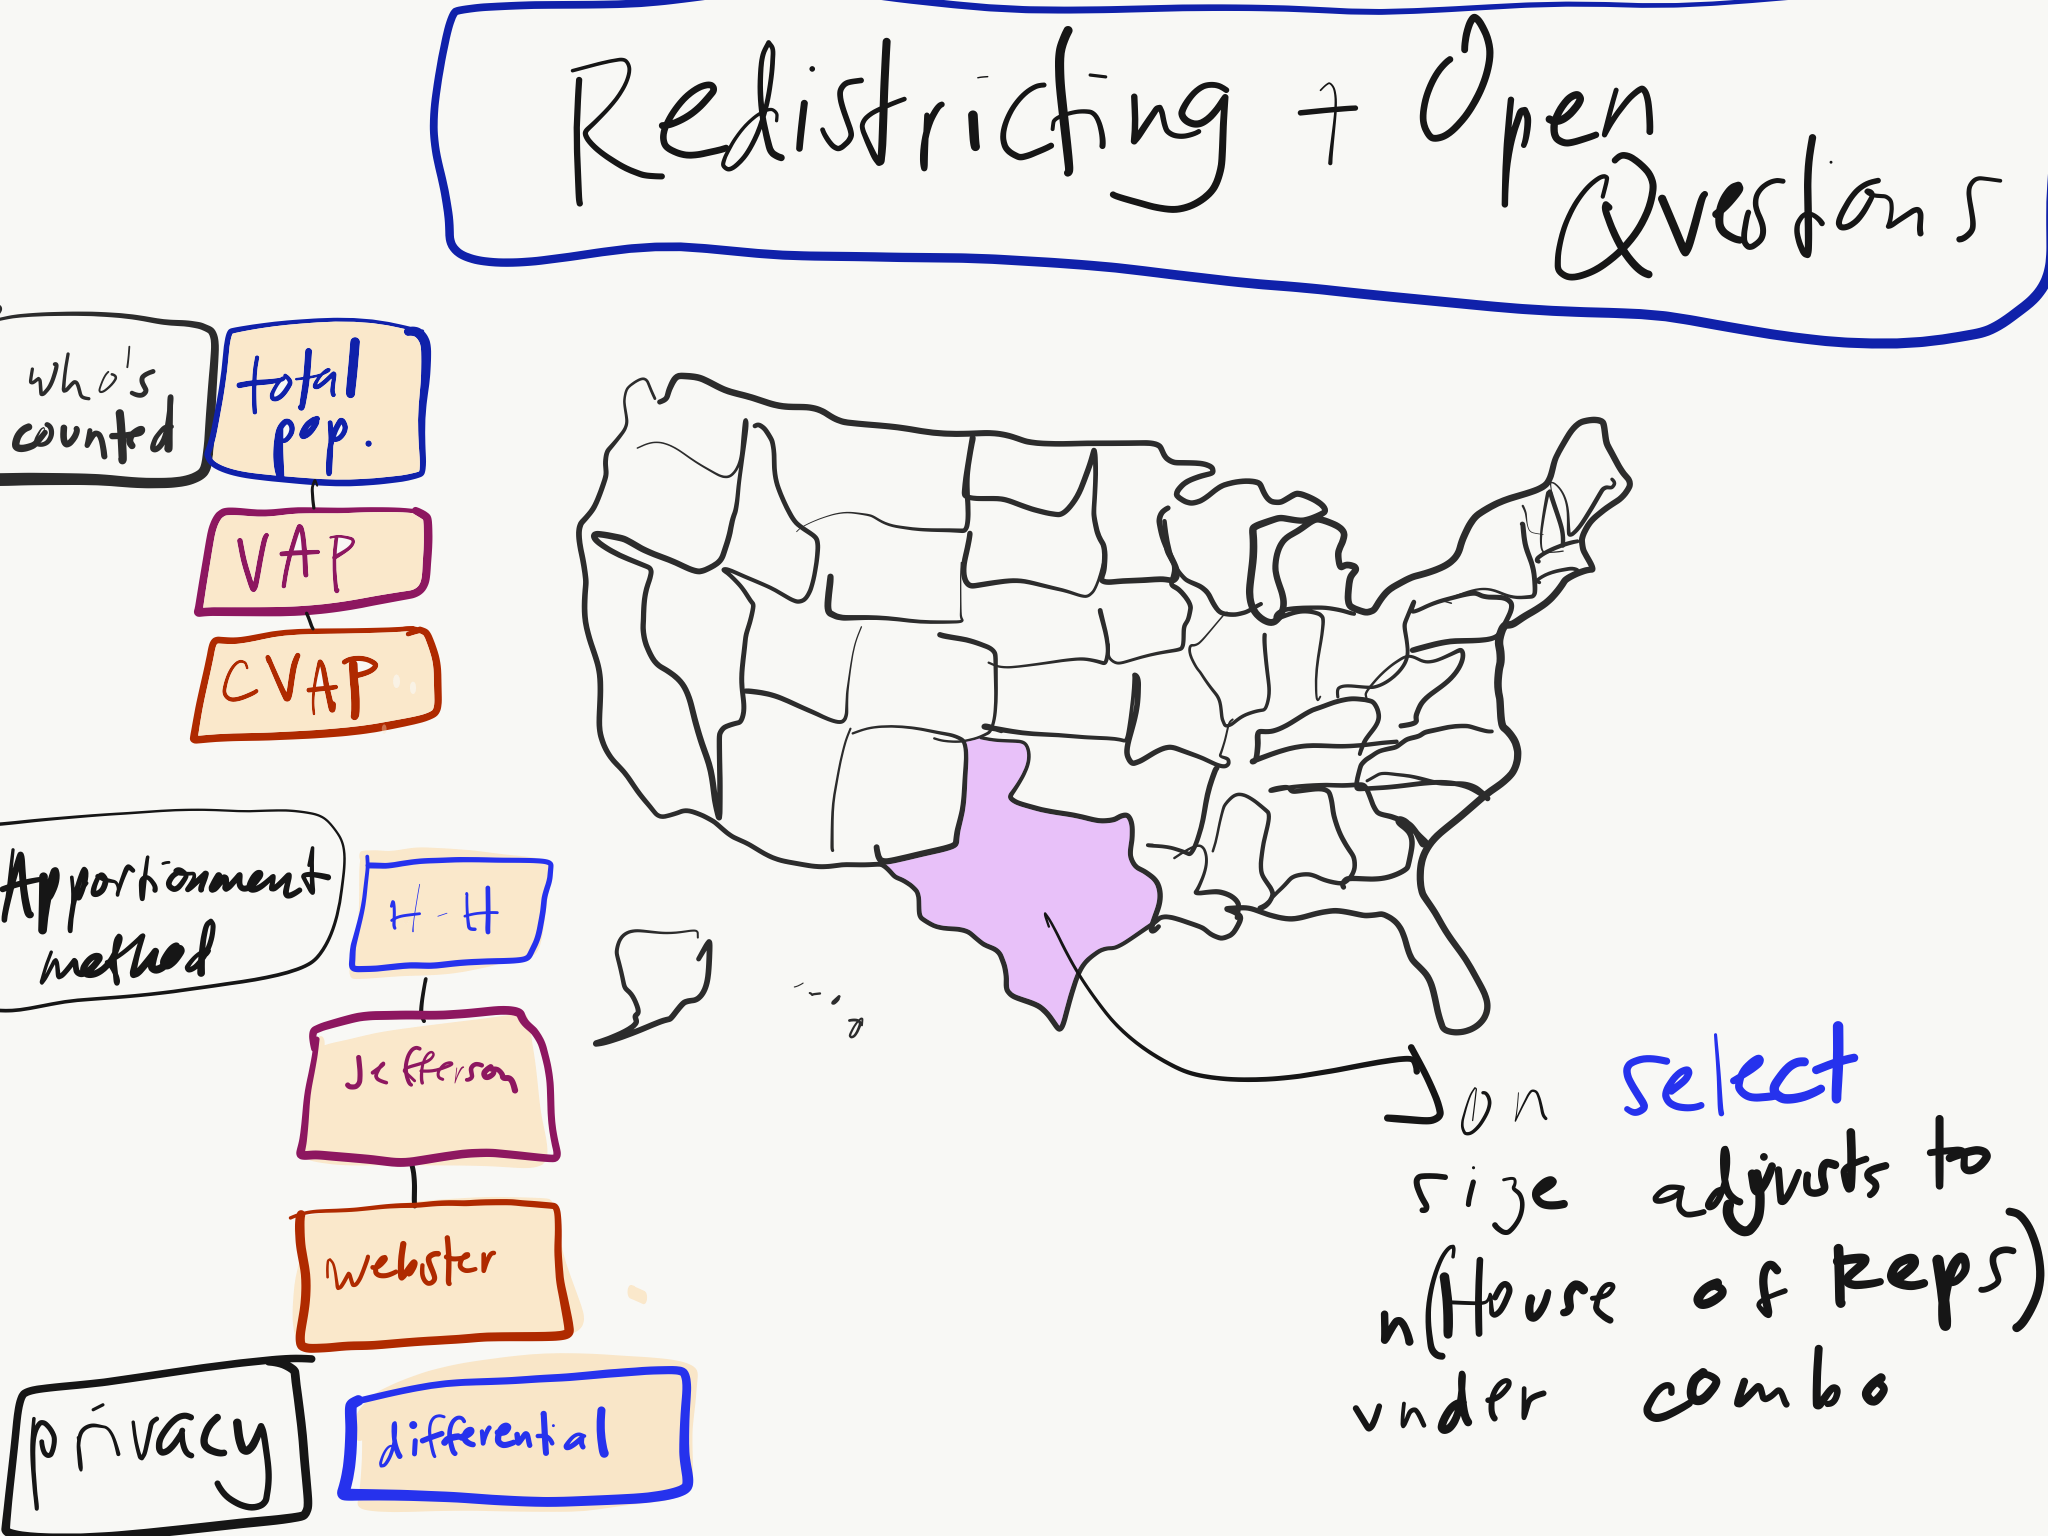 Redistricting + Open
Questions
who's
counted
total
pop.
VAP
CVAP
Apportionment
method
H-H
Jefferson
Webster
privacy
differential
on select
size adjusts to
n(House of Reps)
under combo